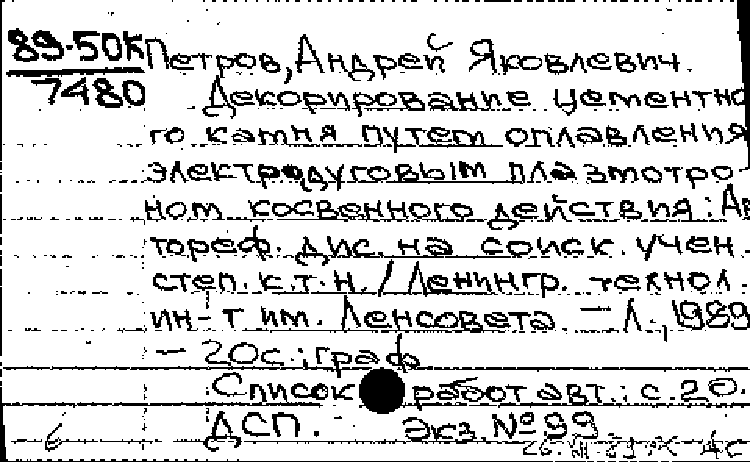 89-50К Петров, Андрей Яковлевич.
7480 Декорирование цементно
го камня путем оплавления
электродуговым плазмотро-
ном косвенного действия: Ав
тореф. дис. на соиск. учен.
степ. к.т.н. / Ленингр. технол.
ин-т им. Ленсовета. — Л., 1989
— 20с.: граф
Список работ авт.: с.20.
ДСП. Экз. №99.
6